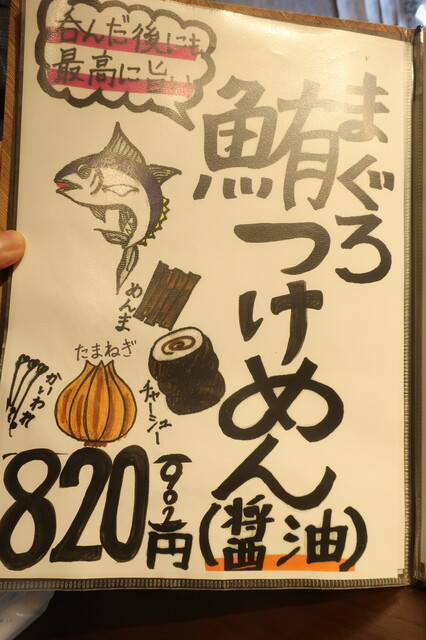 呑んだ後にも
最高に旨い
鮪
まぐろ
つけめん
(醤油)
めんま
チャーシュー
たまねぎ
かいわれ
820円